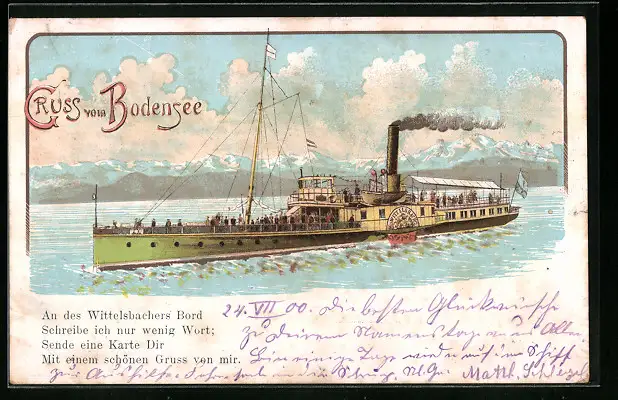 Gruss vom Bodensee
An des Wittelsbachers Bord
Schreibe ich nur wenig Wort;
Sende eine Karte Dir
Mit einem schönen Gruss von mir.
24. VII 00. Die besten Glückwünsche
zu Deinem Namenstage von Allen.
Bin einige Tage wieder auf dem Schiff
zur Aushilfe